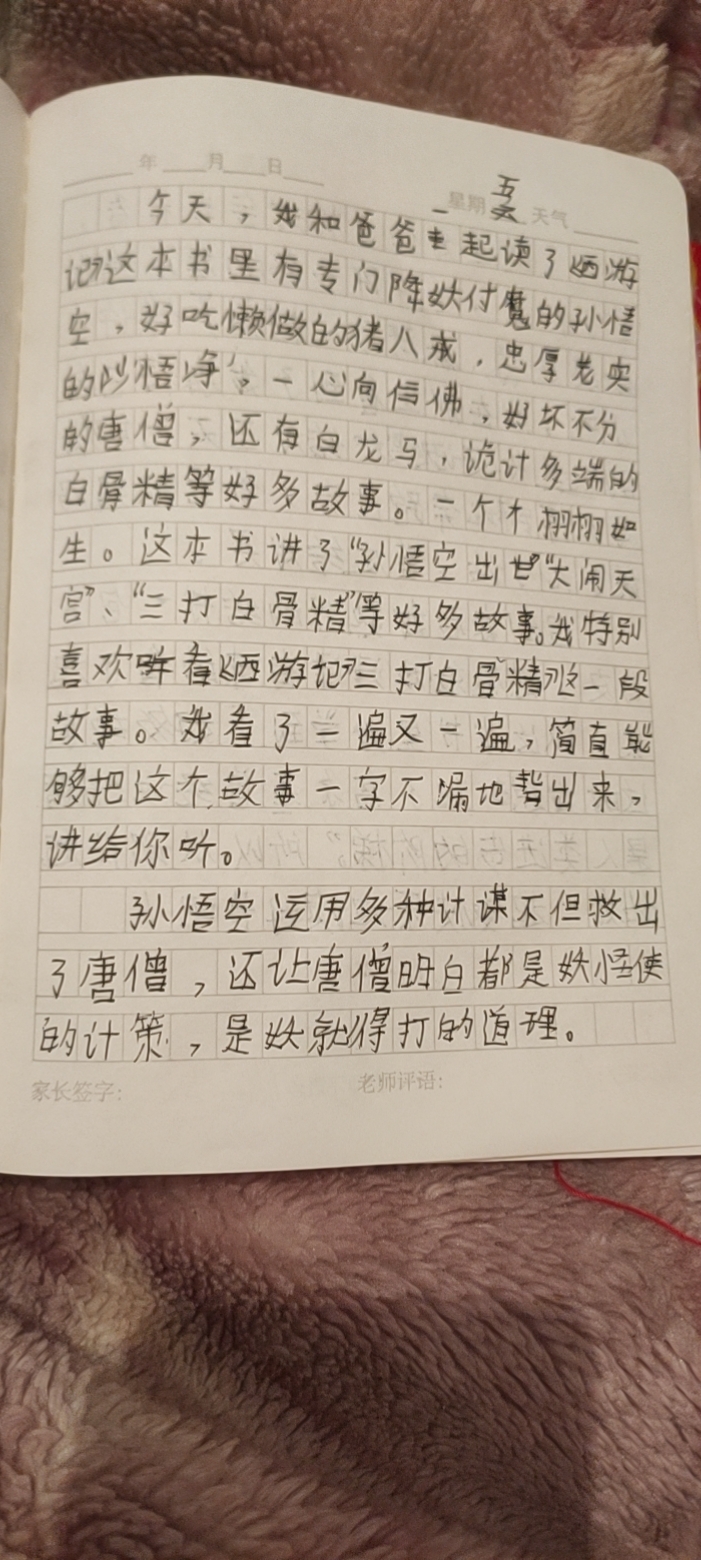 年 月 日
星期 五 天气
今天，我和爸爸一起读了《西游
记》这本书里有专门降妖付魔的孙悟
空，好吃懒做的猪八戒，忠厚老实
的沙悟净，一心向信佛，好坏不分
的唐僧，还有白龙马，诡计多端的
白骨精等好多故事。一个个栩栩如
生。这本书讲了“孙悟空出世”“大闹天
宫”、“三打白骨精”等好多故事。我特别
喜欢看《西游记》三打白骨精这一段
故事。我看了一遍又一遍，简直能
够把这个故事一字不漏地背出来，
讲给你听。
孙悟空运用多种计谋不但救出
了唐僧，还让唐僧明白都是妖怪使
的计策，是妖就得打的道理。
家长签字: 老师评语: